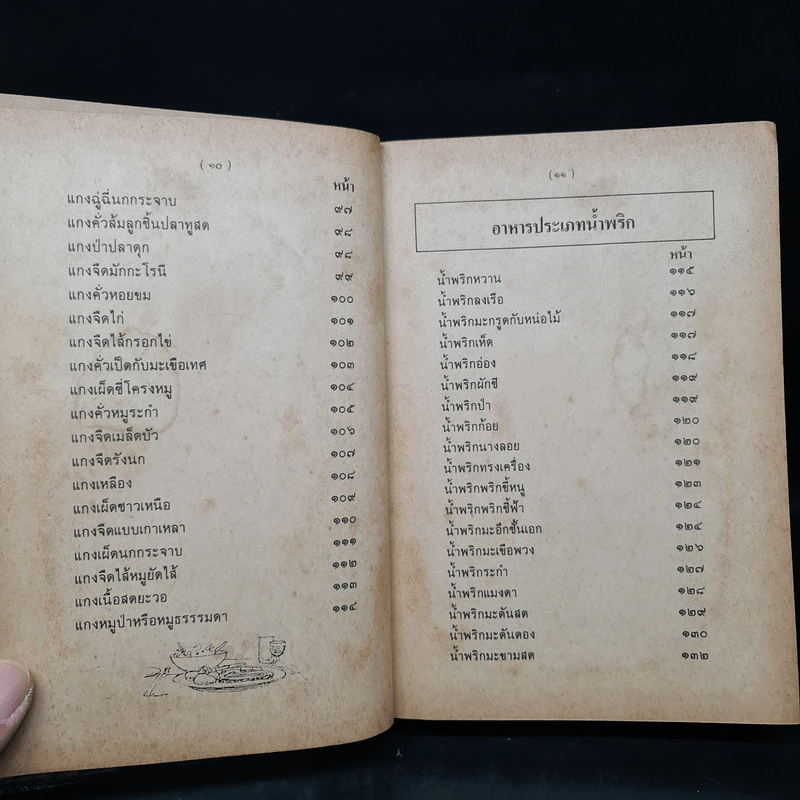 ( ๑๐ )
หน้า
แกงฉู่ฉี่นกกระจาบ ๙๗
แกงคั่วส้มลูกชิ้นปลาทูสด ๙๘
แกงป่าปลาดุก ๙๘
แกงจืดมักกะโรนี ๙๙
แกงคั่วหอยขม ๑๐๐
แกงจืดไก่ ๑๐๑
แกงจืดไส้กรอกไข่ ๑๐๒
แกงคั่วเป็ดกับมะเขือเทศ ๑๐๓
แกงเผ็ดซี่โครงหมู ๑๐๔
แกงคั่วหมูระกำ ๑๐๕
แกงจืดเมล็ดบัว ๑๐๖
แกงจืดรังนก ๑๐๗
แกงเหลือง ๑๐๘
แกงเผ็ดชาวเหนือ ๑๐๙
แกงจืดแบบเกาเหลา ๑๑๐
แกงเผ็ดนกกระจาบ ๑๑๑
แกงจืดไส้หมูยัดไส้ ๑๑๒
แกงเนื้อสดยะวอ ๑๑๓
แกงหมูป่าหรือหมูธรรรมดา ๑๑๔
( ๑๑ )
อาหารประเภทน้ำพริก
หน้า
น้ำพริกหวาน ๑๑๕
น้ำพริกลงเรือ ๑๑๖
น้ำพริกมะกรูดกับหน่อไม้ ๑๑๗
น้ำพริกเห็ด ๑๑๗
น้ำพริกอ่อง ๑๑๘
น้ำพริกผักชี ๑๑๙
น้ำพริกป่า ๑๑๙
น้ำพริกก้อย ๑๒๐
น้ำพริกนางลอย ๑๒๐
น้ำพริกทรงเครื่อง ๑๒๑
น้ำพริกพริกขี้หนู ๑๒๓
น้ำพริกพริกชี้ฟ้า ๑๒๔
น้ำพริกมะอึกชั้นเอก ๑๒๔
น้ำพริกมะเขือพวง ๑๒๖
น้ำพริกระกำ ๑๒๗
น้ำพริกแมงดา ๑๒๘
น้ำพริกมะดันสด ๑๒๙
น้ำพริกมะดันดอง ๑๓๐
น้ำพริกมะขามสด ๑๓๒